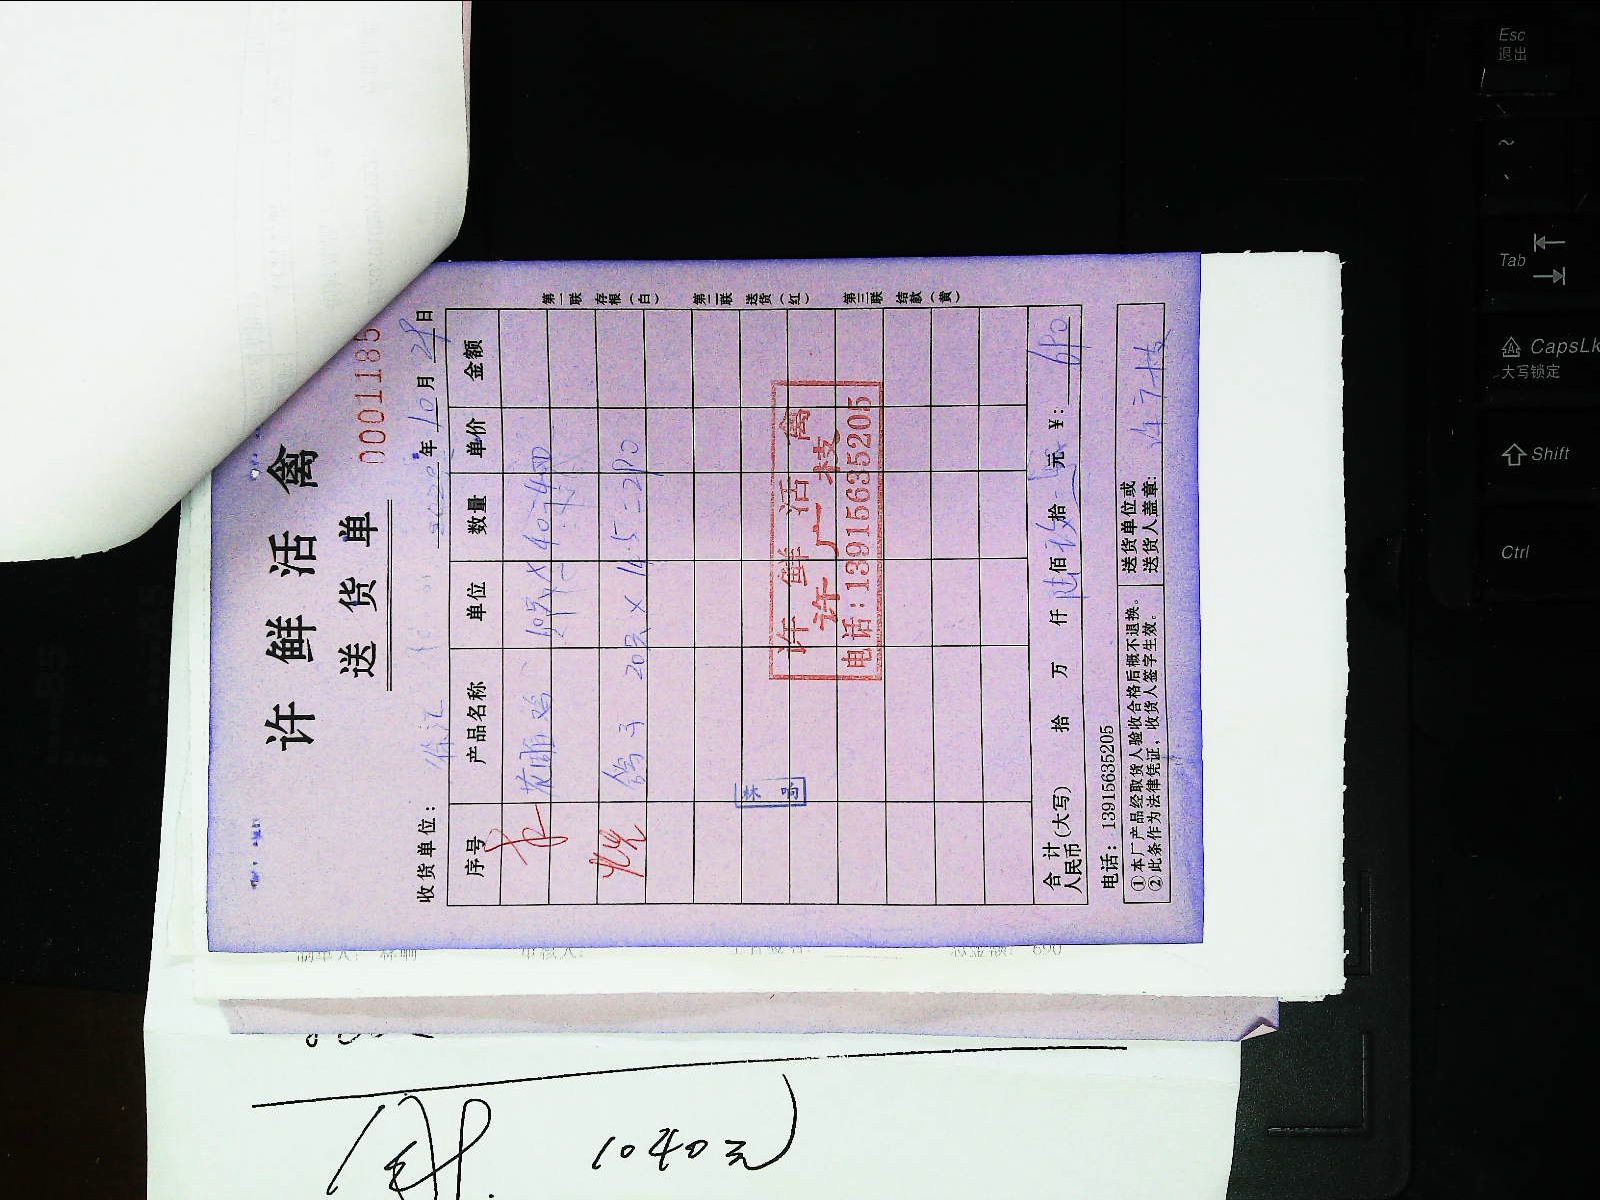 许鲜活禽
送货单
0001185
收货单位： 徐汇
2020年10月29日
序号 产品名称 单位 数量 单价 金额
鸽子 20只×14.5=290
林响
许鲜活禽
许广枝
电话:13915635205
合计
人民币(大写) 拾 万 仟 陆佰 玖拾 元 ¥: 690
电话: 13915635205
①本厂产品经取货人验收合格后概不退换。
②此条作为法律凭证、收货人签字生效。
送货单位或
送货人盖章: 许广枝
第一联 存根(白) 第二联 送货(红) 第三联 结款(黄)
制单人: 林响 审核人: 690
1040元
Esc
退出
Tab
CapsLk
大写锁定
Shift
Ctrl